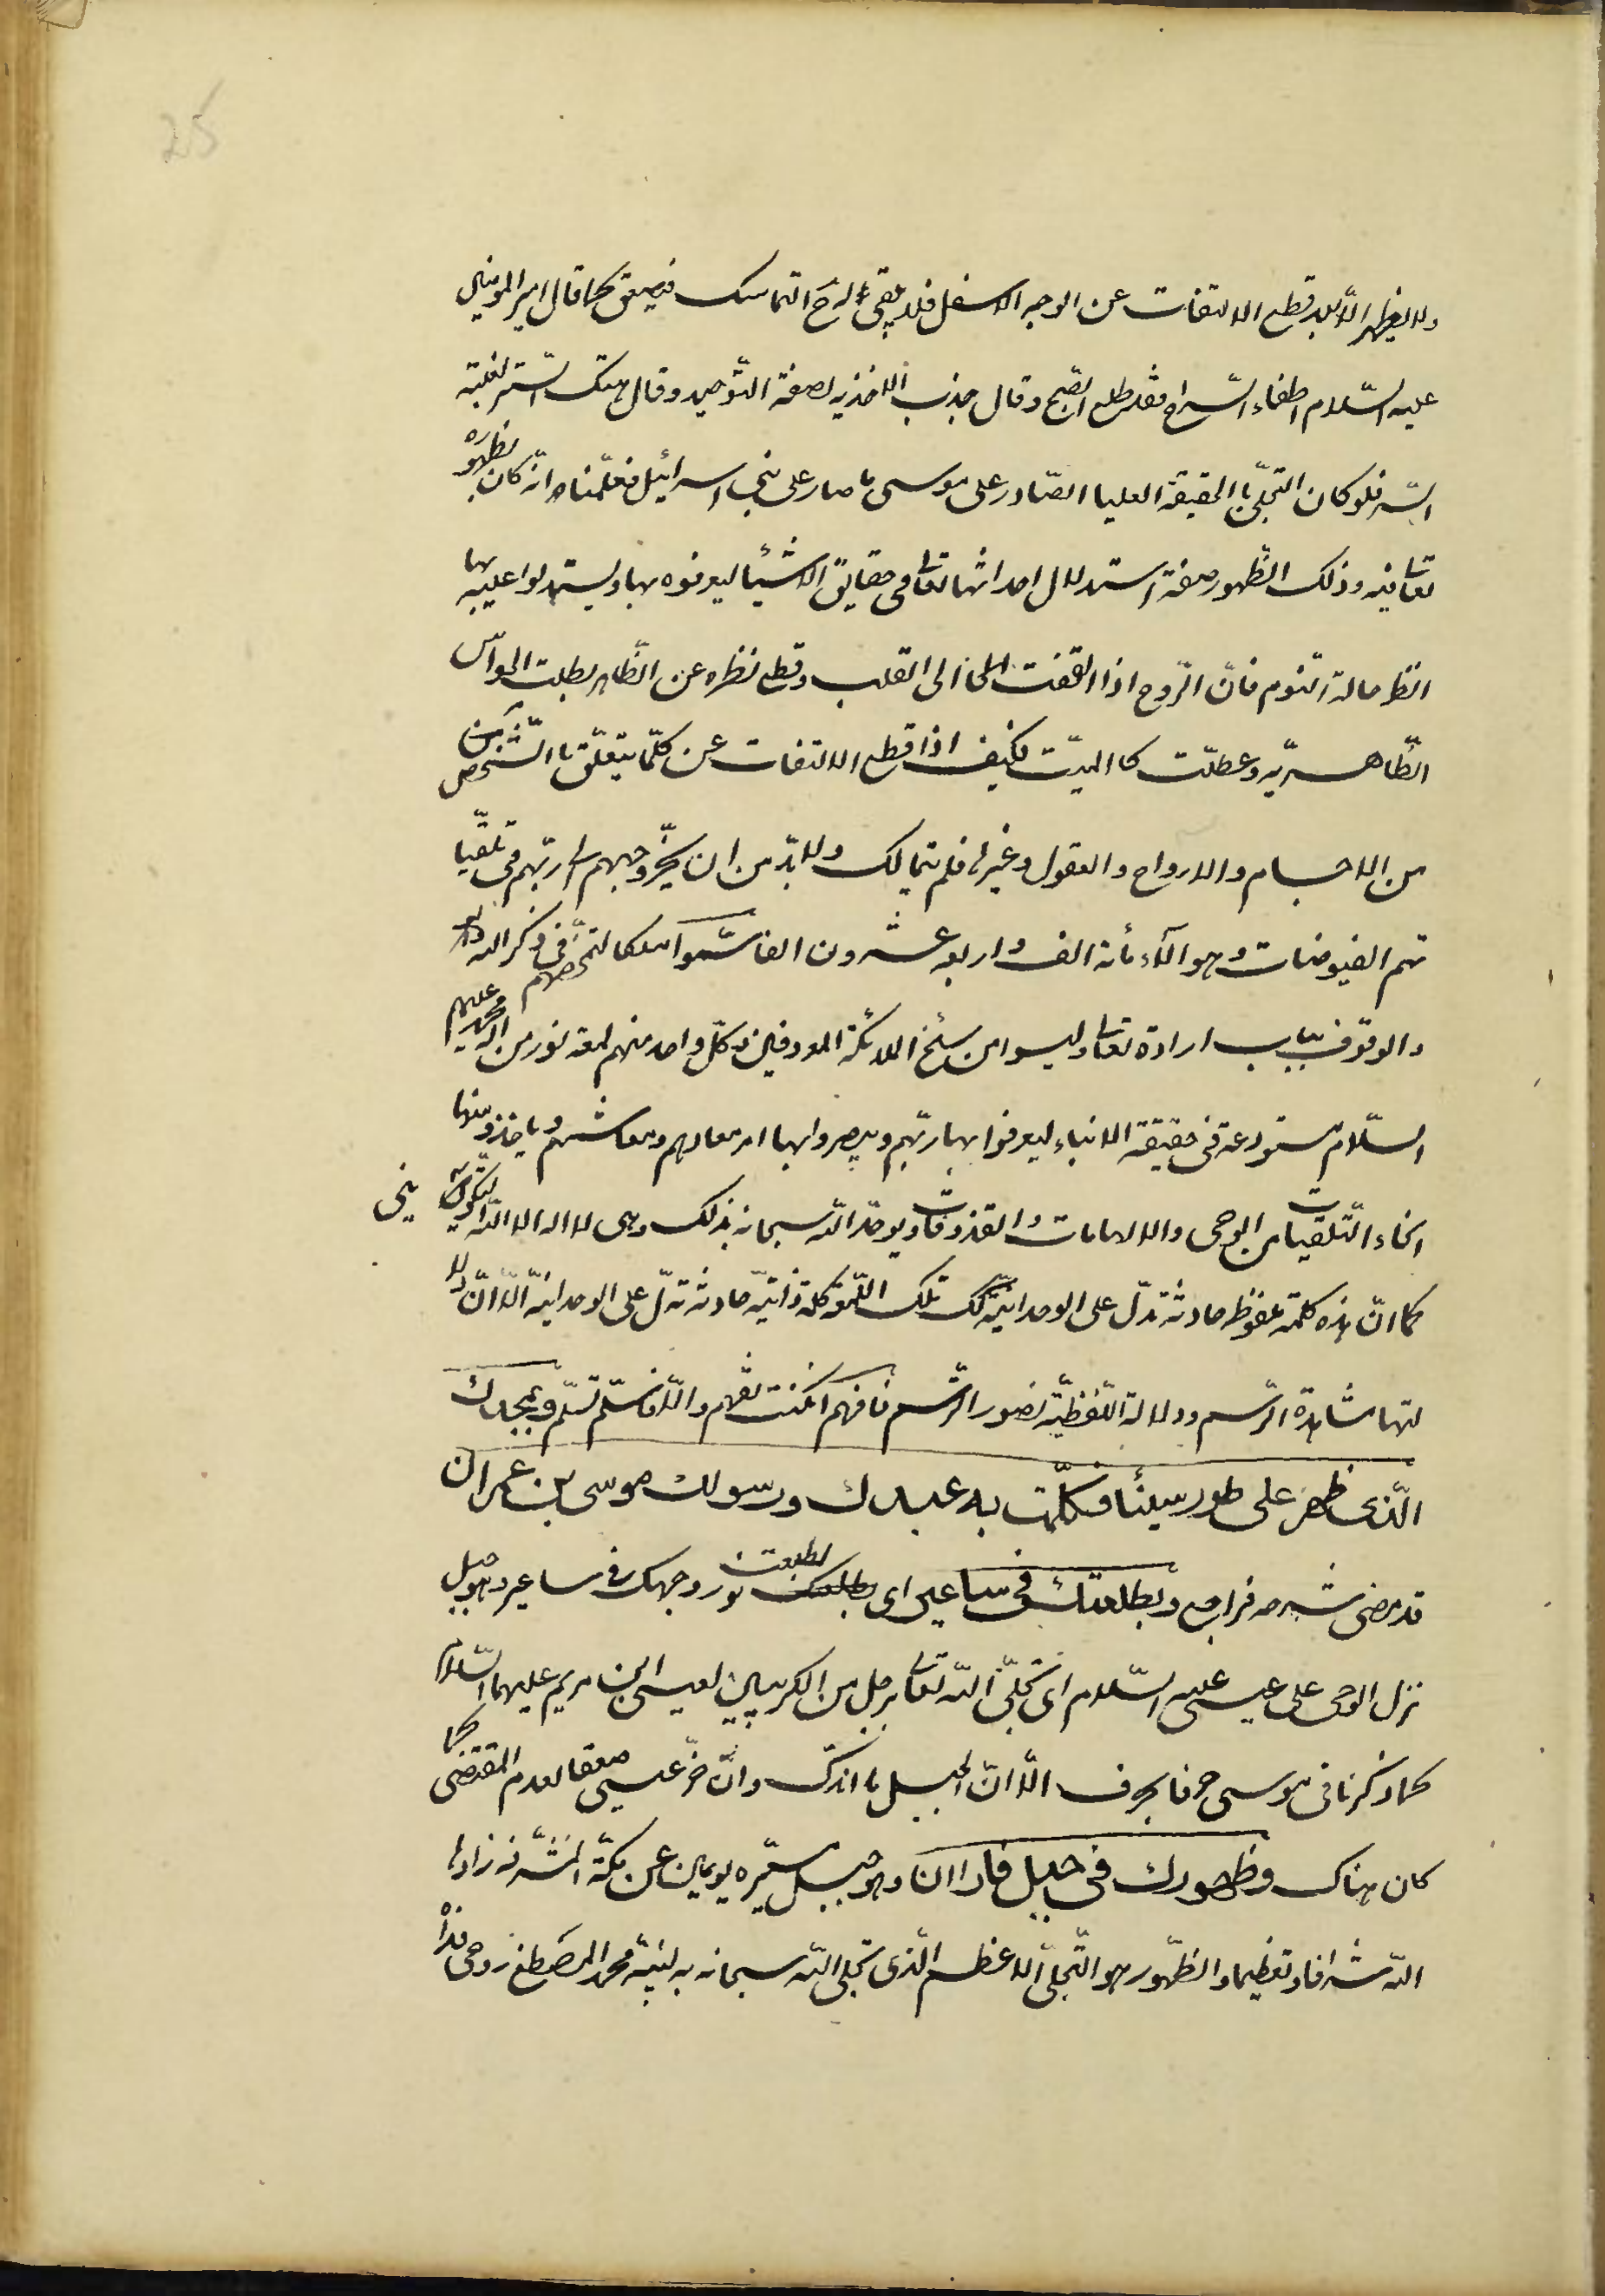 25
ولا يظهر الا بعد قطع الالتفات عن الوجه الاسفل فلا يبقى له ح التماسك فيصعق كما قال امير المؤمنين
عليه السّلام اطفاء السّراج فقد طلع الصّبح وقال جذب الاحديّه لصفة التّوحيد وقال هتك السّتر لغلبة
السّر فلو كان التجلّي با الحقيقة العليا الصّادر على موسى ما صار على بني اسرائيل فعلمنا انّه كان ظهوره
تعالى فيه وذلك الظّهور صفة استدلال احداثها تعالى في حقايق الاشيا ليعرفوه بها وليستدلوا عليه بها
انظر حالة النّوم فانّ الرّوح اذا التفت الى القلب وقطع نظره عن الظّاهر بطلت الحواسّ
الظّاهريّه وعطلت كا الميّت فكيف اذا قطع الالتفات عن كلّما يتعلّق با الشّخص
من الاجسام والارواح والعقول وغيرها فلم يتمالك ولا بدّ من ان وجههم الى ربّهم في تلقيا
تهم الفيوضات وهوالآء مأته الف واربعه عشرون الفا سموا ملكا في ذكر الله
والوقوف بباب ارادة تعالى وليسوا من سنخ الملائكة المعروفين وكلّ واحد منهم لمعة نور من محمد عليهم
السّلام مستودعة في حقيقة الانبياء ليعرفوا بها ربّهم ويبصروا بها امر معادهم ومعاشهم وياخذو منها
انحاء التّلقيات من الوحى والالهامات والقذوفات ويوحّد الله سبحانه بذلك وهى لا اله الا الله التكوينى
كما انّ هذه كلمة ملفوظه حادثه تدلّ على الوحدانيّة كك تلك كلمة ذاتيّة حادثه تدلّ على الوحدانيّة الّا انّ دلا
لتها مشاهدة الرّسم ودلالة اللّفظيّة تصور الرّسم فافهم ان كنت تفهم والّا فاسلم تسلم وبمجدك
الّذى ظهر على طور سيناء فكلّمت به عبدك ورسولك موسى بن عمران
قد مضى شرحه فراجع وبطلعتك في ساعير اى بطلعت نور وجهك فى ساعير وهو جبل
نزل الوحى على عيسى عليه السّلام اى تجلّى الله تعالى برجل من الكروبيين لعيسى ابن مريم عليهما السّلام
كما ذكرنا فى موسى حرفا بحرف الّا انّ الجبل ما اندكّ وان خرّ عيسى صعقا لعدم المقتضى كما
كان هناك وظهورك في جبل فاران وهو جبل مسيره يومين عن مكّة المشرفه زادها
الله شرافا وتعظيما والظّهور هو التّجلى الاعظم الّذى تجلى الله سبحانه به لنبيّه محمد المصطفى روحى فداه